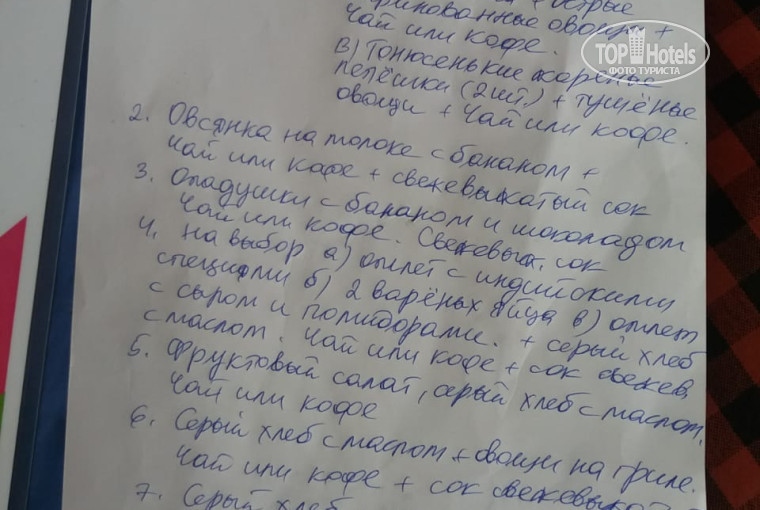 острые
маринованные овощи +
чай или кофе.
в) Тонюсенькие жареные
лепёшки (2 шт.) + тушёные
овощи + чай или кофе.
2. Овсянка на молоке с бананом +
чай или кафе + свежевыжатый сок
3. Оладушки с бананом и шоколадом
чай или кофе. Свежевыж. сок
4. на выбор а) омлет с индийскими
специями б) 2 варёных яйца в) омлет
с сыром и помидорами. + серый хлеб
с маслом. Чай или кофе + сок свежев.
5. Фруктовый салат, серый хлеб с маслом,
чай или кофе
6. Серый хлеб с маслом + овощи на гриле.
чай или кофе + сок
7. Серый хлеб
TOP Hotels
ФОТО ТУРИСТА